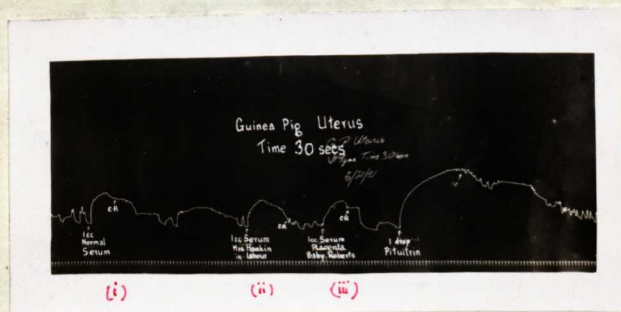 Guinea Pig Uterus
Time 30 secs
G.P. Uterus
Time 30 secs
CR
CR
CR
1cc
Normal
Serum
1cc Serum
Mrs
in Labour
1cc Serum
Placenta
Baby. Roberts
1 drop
Pituitrin
(i)
(ii)
(iii)